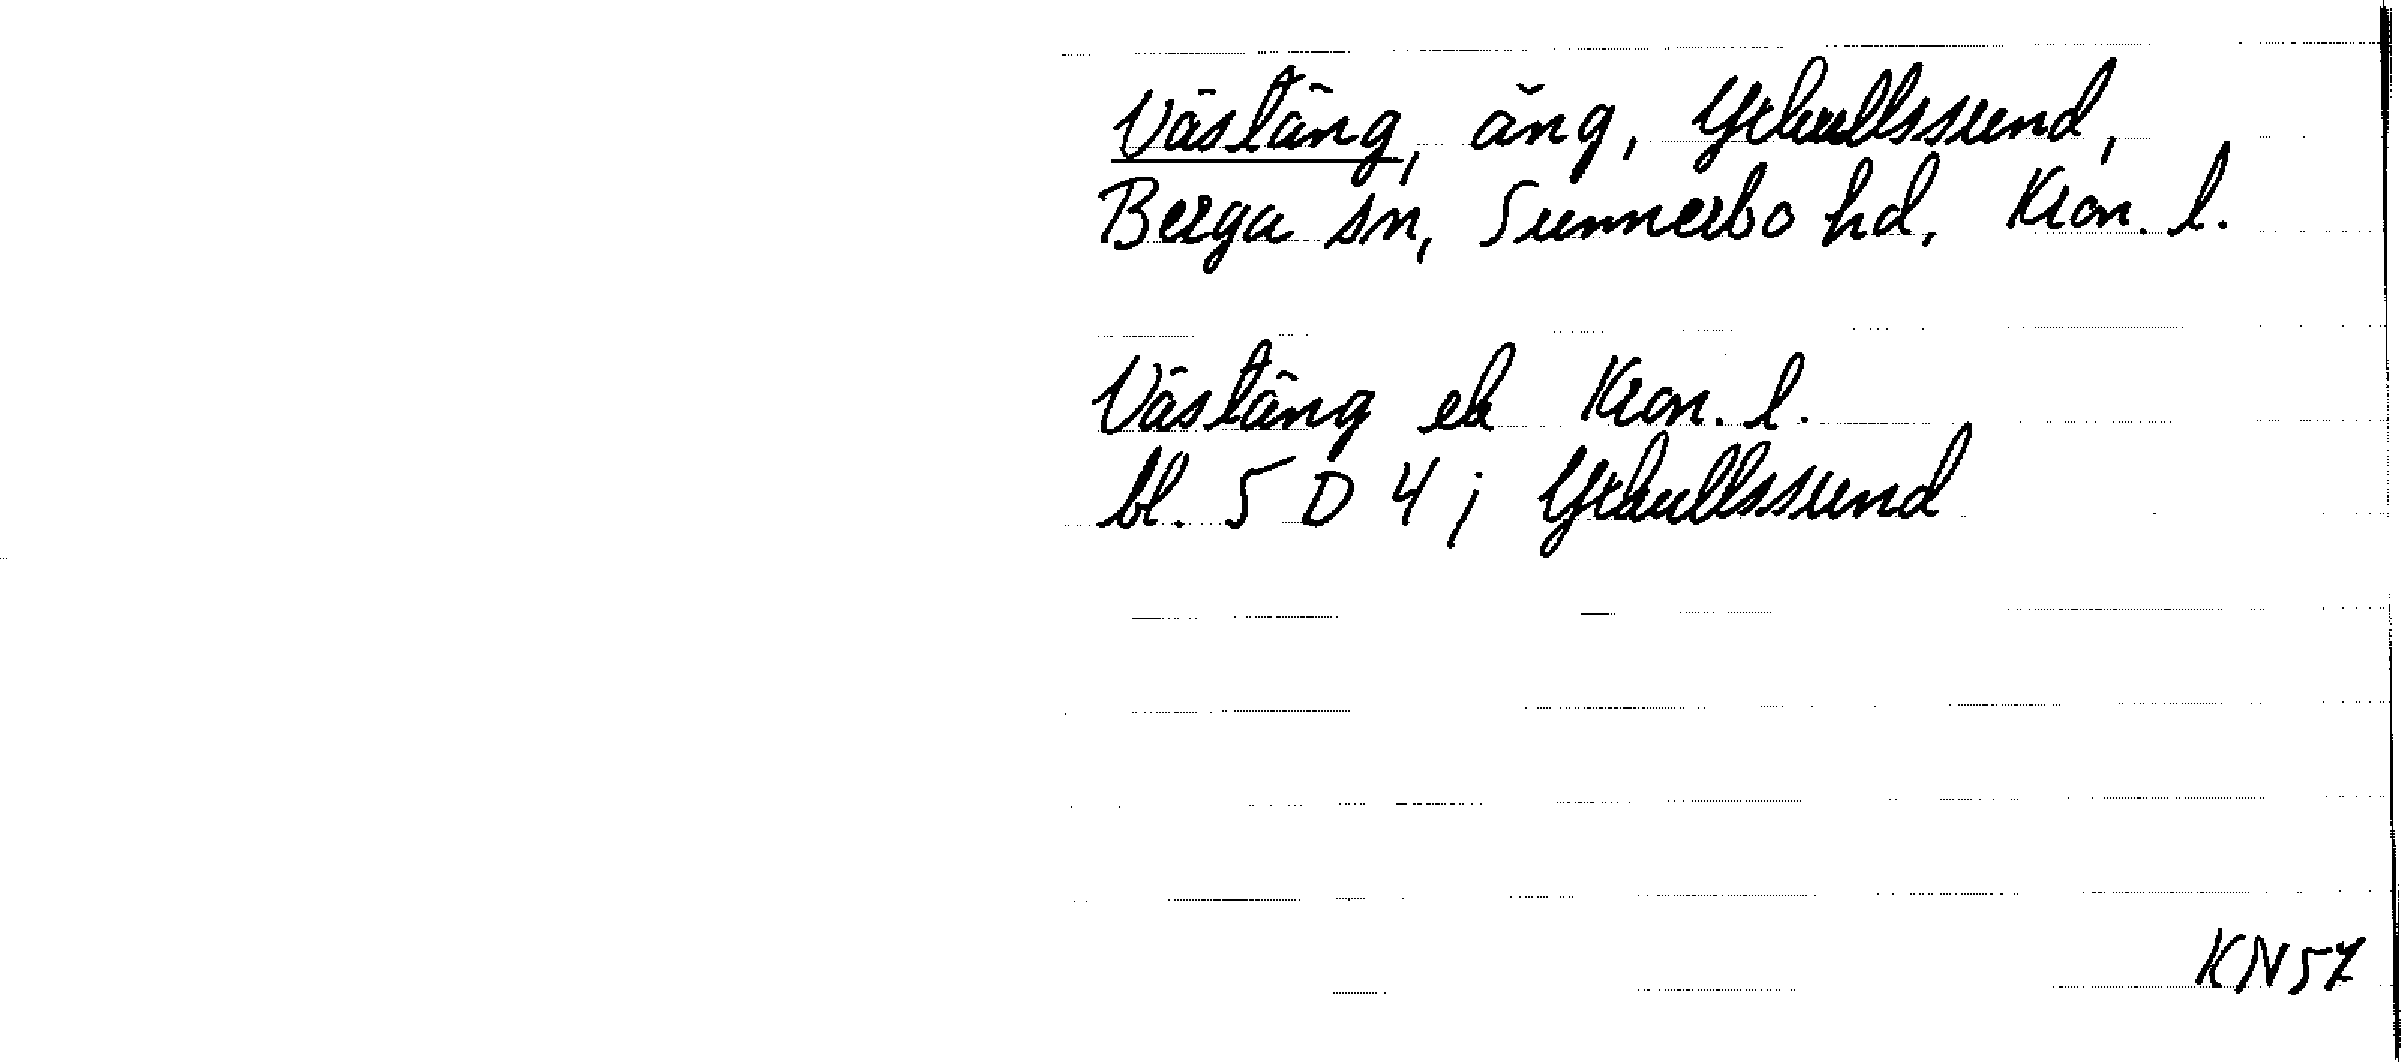 Västäng, äng, Yxkullssund,
Berga sn, Sunnerbo hd, Kron. l.
Västäng ek Kron. l.
bl. 5 D 4 j Yxkullssund
KN57